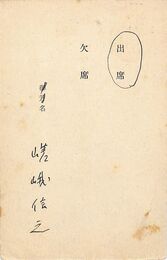 出席
欠席
芳名
嵯峨信之